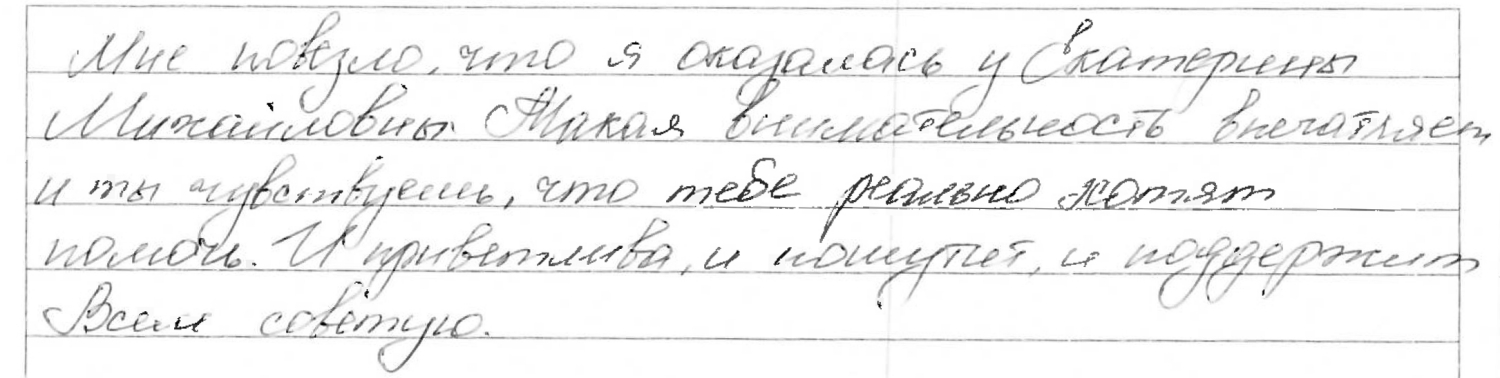 Мне повезло, что я оказалась у Екатерины
Михайловны. Такая внимательность впечатляет
и ты чувствуешь, что тебе реально хотят
помочь. И приветлива, и пошутит, и поддержит
Всем советую.